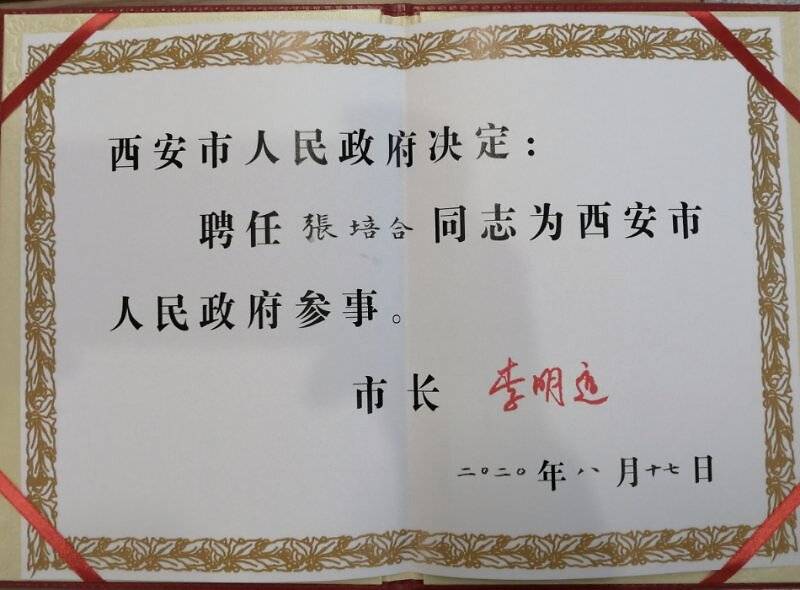 西安市人民政府决定：
聘任張培合同志为西安市
人民政府参事。
市长 李明远
二〇二〇年八月十七日